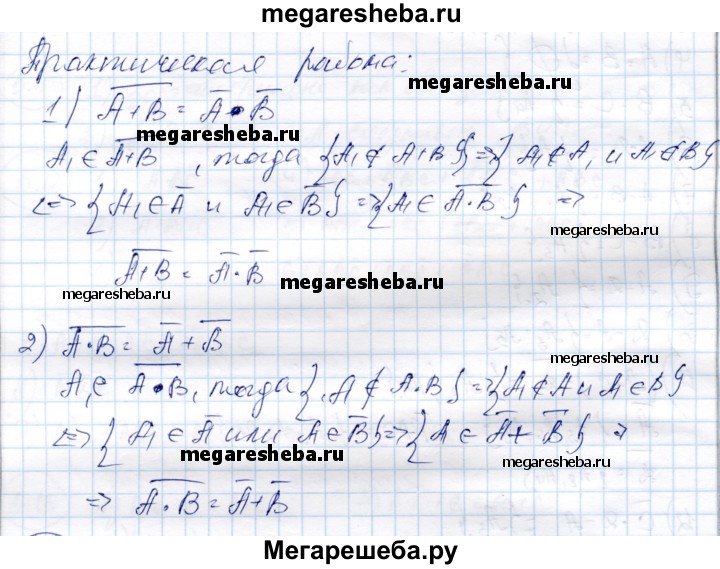 megaresheba.ru
Практическая работа:
megaresheba.ru
1) \overline{A+B} = \overline{A} • \overline{B}
megaresheba.ru
A₁ ∈ \overline{A+B}, тогда {A₁ ∉ A+B} ⇔ {A₁ ∉ A, и A₁ ∉ B}
⇔ {A₁ ∈ \overline{A} и A₁ ∈ \overline{B}} ⇔ {A₁ ∈ \overline{A·B}} ⇒
megaresheba.ru
\overline{A+B} = \overline{A}·\overline{B}
megaresheba.ru
megaresheba.ru
2) \overline{A·B} = \overline{A} + \overline{B}
megaresheba.ru
A₁ ∈ \overline{A•B}, тогда {A ∉ A·B} ⇔ {A₁ ∉ A и A₁ ∈ B}
⇔ {A₁ ∈ \overline{A} или A ∈ \overline{B}} ⇔ {A ∈ \overline{A} + \overline{B}} ⇒
megaresheba.ru
megaresheba.ru
⇒ \overline{A·B} = \overline{A} + \overline{B}
megaresheba.ru
Мегарешеба.ру